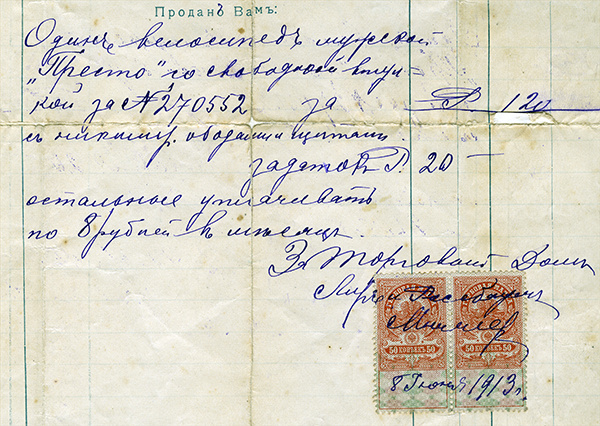 Продано Вамъ:
Одинъ велосипедъ мужской
„Престо“, со свободной втул-
кой за № 270552 за Р. 120
съ никкилир. ободами и щитами.
задатокъ Р. 20 —
остальные уплачивать
по 8 рублей въ мѣсяцъ.
За Торговый Домъ
50 КОПѢЕКЪ 50 50 КОПѢЕКЪ 50
8 Iюня 1913 г.